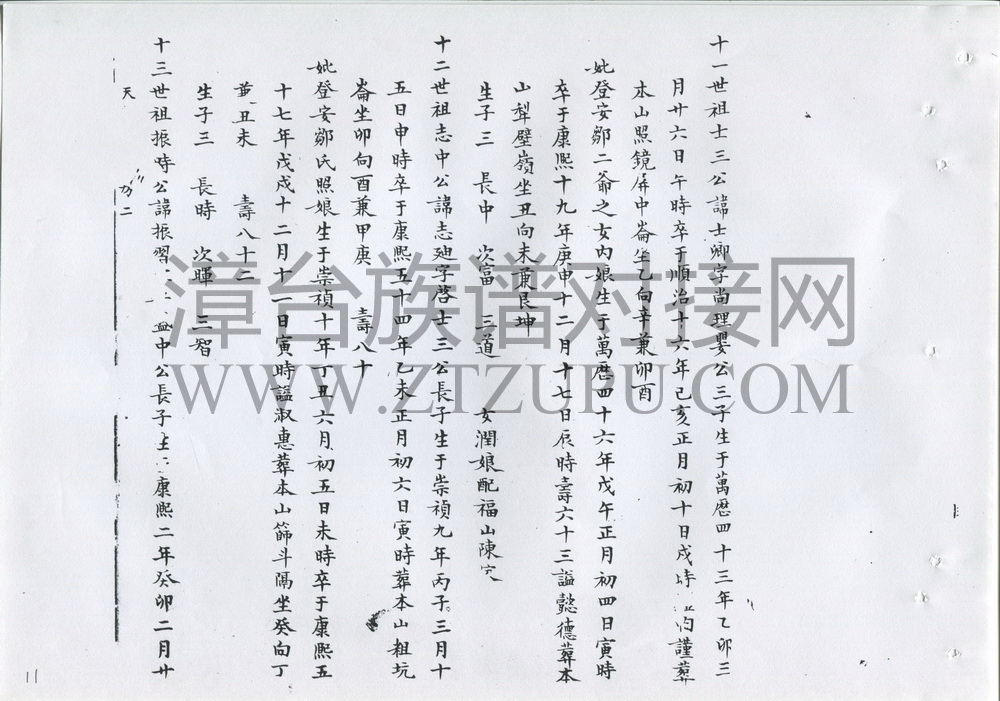 十一世祖士三公諱士卿字尚理嬰公三子生于萬曆四十三年乙卯三
月廿六日午時卒于順治十六年己亥正月初十日戌時 謹葬
本山照鏡屏中崙坐乙向辛兼卯酉
妣登安鄒二爺之女內娘生于萬曆四十六年戊午正月初四日寅時
卒于康熙十九年庚申十二月十七日辰時壽六十三謚懿德葬本
山犁壁嶺坐丑向未兼艮坤
生子三 長中 次富 三道 女潤娘配福山陳
十二世祖志中公諱志廸字啓士三公長子生于崇禎九年丙子三月十
五日申時卒于康熙五十四年乙未正月初六日寅時葬本山粗坑
崙坐卯向酉兼甲庚 壽八十
妣登安鄒氏照娘生于崇禎十年丁丑六月初五日未時卒于康熙五
十七年戊戌十二月十一日寅時謚淑惠葬本山篩斗隔坐癸向丁
兼丑未 壽八十二
生子三 長時 次暉 三智
十三世祖振時公諱振習 中公長子生 康熙二年癸卯二月廿
天 二
11
漳台族谱对接网
WWW.ZTZUPU.COM